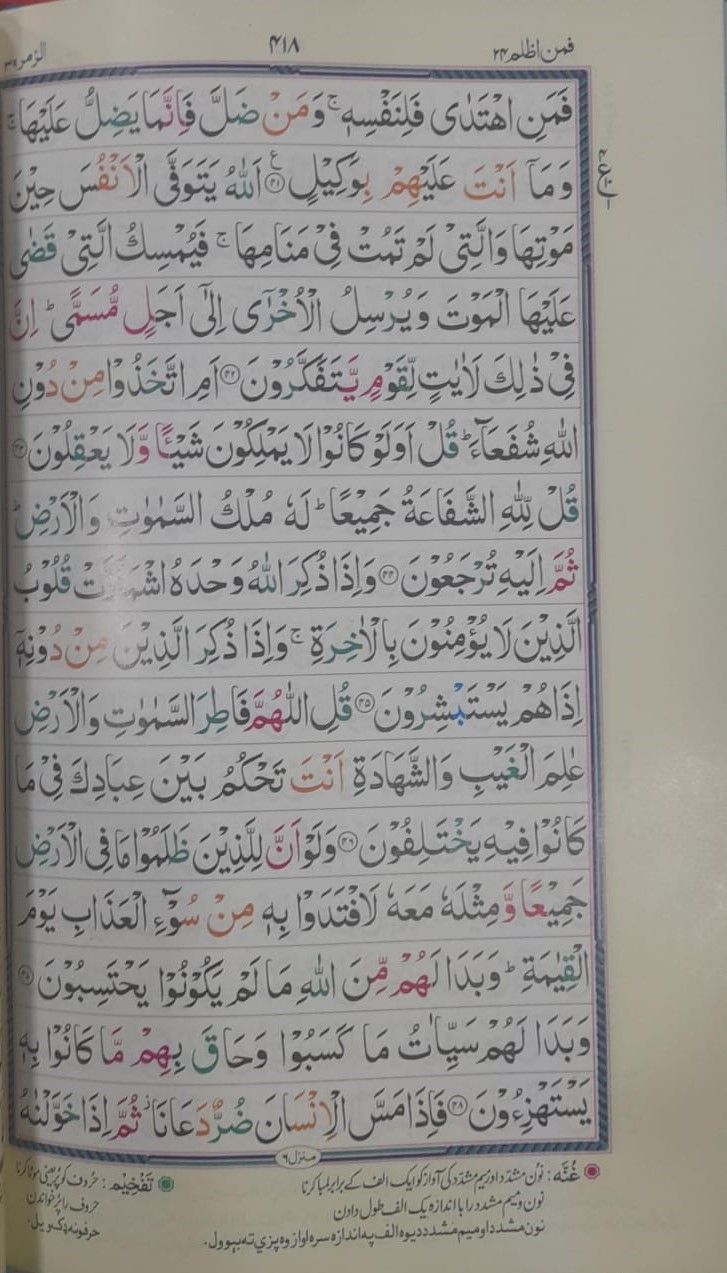 فمن اظلم ۲۴
۴۱۸
الزمر ۳۹
فَمَنِ اهْتَدٰى فَلِنَفْسِهٖ ۚ وَمَنْ ضَلَّ فَاِنَّمَا يَضِلُّ عَلَيْهَا ۚ
وَمَاۤ اَنْتَ عَلَيْهِمْ بِوَكِيْلٍ ۴۱ اَللّٰهُ يَتَوَفَّى الْاَنْفُسَ حِيْنَ
مَوْتِهَا وَالَّتِيْ لَمْ تَمُتْ فِيْ مَنَامِهَا ۚ فَيُمْسِكُ الَّتِيْ قَضٰى
عَلَيْهَا الْمَوْتَ وَيُرْسِلُ الْاُخْرٰۤى اِلٰۤى اَجَلٍ مُّسَمًّى ؕ اِنَّ
فِيْ ذٰلِكَ لَاٰيٰتٍ لِّقَوْمٍ يَّتَفَكَّرُوْنَ ۴۲ اَمِ اتَّخَذُوْا مِنْ دُوْنِ
اللّٰهِ شُفَعَآءَ ؕ قُلْ اَوَلَوْ كَانُوْا لَا يَمْلِكُوْنَ شَيْـًٔا وَّلَا يَعْقِلُوْنَ ۴۳
قُلْ لِّلّٰهِ الشَّفَاعَةُ جَمِيْعًا ؕ لَهٗ مُلْكُ السَّمٰوٰتِ وَالْاَرْضِ ؕ
ثُمَّ اِلَيْهِ تُرْجَعُوْنَ ۴۴ وَاِذَا ذُكِرَ اللّٰهُ وَحْدَهُ اشْمَاَزَّتْ قُلُوْبُ
الَّذِيْنَ لَا يُؤْمِنُوْنَ بِالْاٰخِرَةِ ۚ وَاِذَا ذُكِرَ الَّذِيْنَ مِنْ دُوْنِهٖۤ
اِذَا هُمْ يَسْتَبْشِرُوْنَ ۴۵ قُلِ اللّٰهُمَّ فَاطِرَ السَّمٰوٰتِ وَالْاَرْضِ
عٰلِمَ الْغَيْبِ وَالشَّهَادَةِ اَنْتَ تَحْكُمُ بَيْنَ عِبَادِكَ فِيْ مَا
كَانُوْا فِيْهِ يَخْتَلِفُوْنَ ۴۶ وَلَوْ اَنَّ لِلَّذِيْنَ ظَلَمُوْا مَا فِى الْاَرْضِ
جَمِيْعًا وَّمِثْلَهٗ مَعَهٗ لَافْتَدَوْا بِهٖ مِنْ سُوْٓءِ الْعَذَابِ يَوْمَ
الْقِيٰمَةِ ؕ وَبَدَا لَهُمْ مِّنَ اللّٰهِ مَا لَمْ يَكُوْنُوْا يَحْتَسِبُوْنَ ۴۷
وَبَدَا لَهُمْ سَيِّاٰتُ مَا كَسَبُوْا وَحَاقَ بِهِمْ مَّا كَانُوْا بِهٖ
يَسْتَهْزِءُوْنَ ۴۸ فَاِذَا مَسَّ الْاِنْسَانَ ضُرٌّ دَعَانَا ؗ ثُمَّ اِذَا خَوَّلْنٰهُ
منزل ۶
غُنَّہ: نون مشدد اور میم مشدد کی آواز کو ایک الف کے برابر لمبا کرنا
نون و میم مشدد را با اندازه یک الف طول دادن
نون مشدد او میم مشدد د یوه الف په اندازه سره اواز وه پزې ته بېوول.
تَفْخِیْم: حروف کو پُر یعنی موٹا کرنا
حروف را پر خواندن
حرفونه ډک ویل.